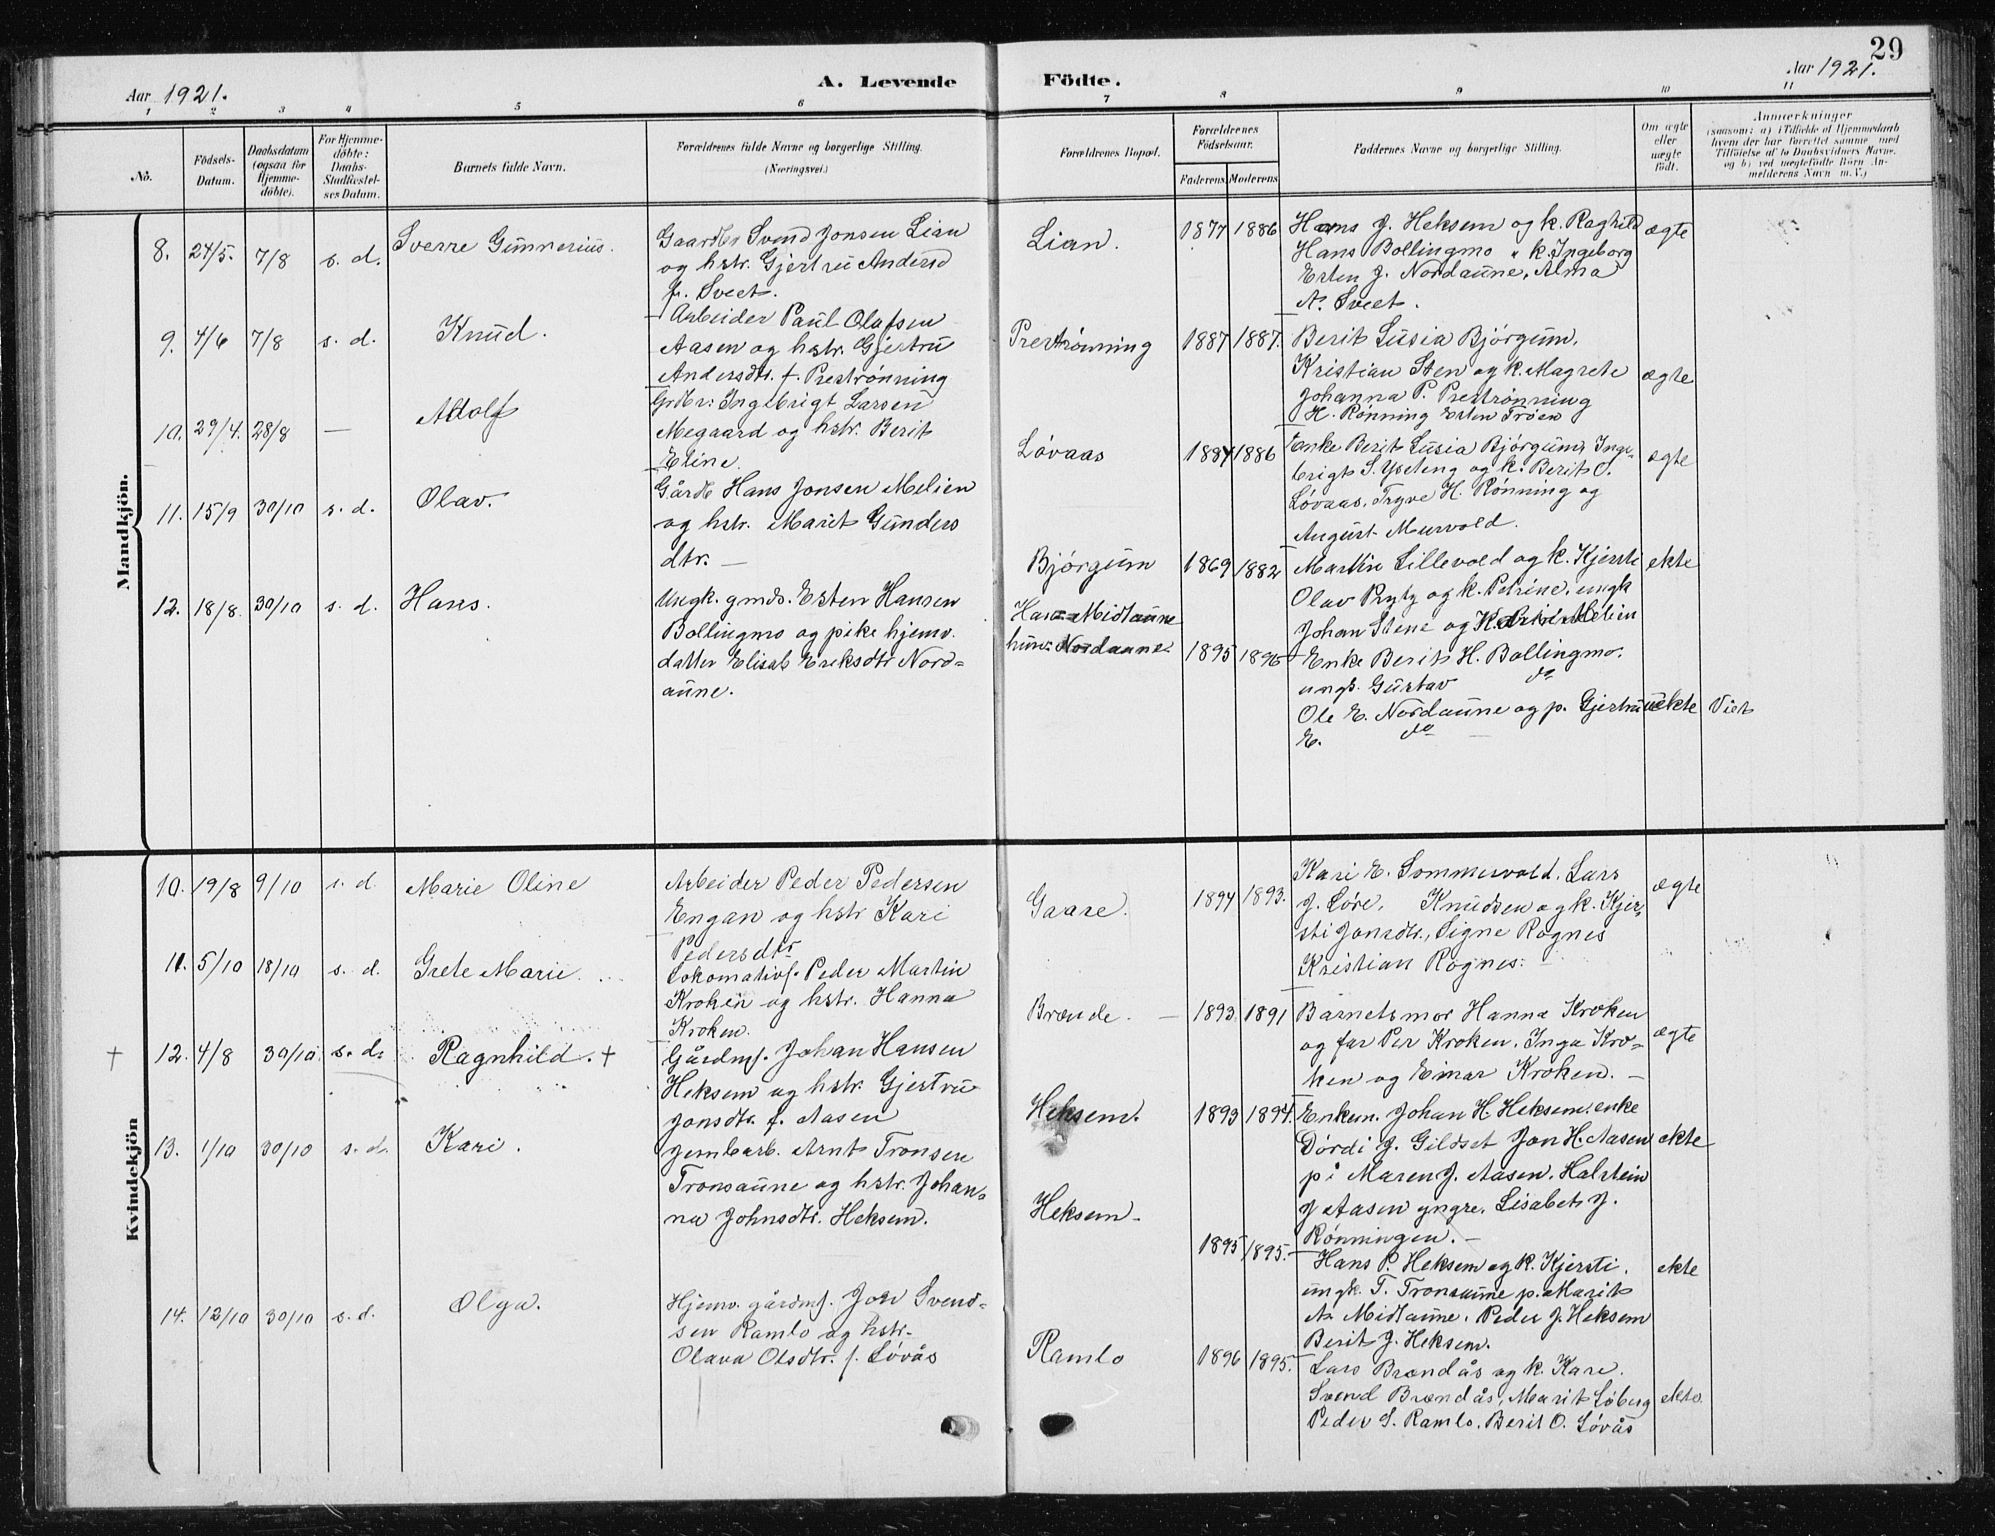 29
Aar 1921.
A. Levende
Födte.
Aar 1921.
1 2 3 4 5 6 7 8 9 10 11
No.
Födsels-
Datum.
Daabsdatum
(ogsaa for
Hjemme-
döbte).
For Hjemme-
döbte:
Daabs-
Stadfæstel-
ses Datum.
Barnets fulde Navn.
Forældrenes fulde Navne og borgerlige Stilling.
(Næringsvei.)
Forældrenes Bopæl.
Forældrenes
Födselsaar.
Faderens. Moderens.
Faddernes Navne og borgerlige Stilling.
Om ægte
eller
uægte
födt.
Anmærkninger
(saasom: a) i Tilfælde af Hjemmedaab
hvem der har forrettet samme med
Tilföielse af to Daabsvidners Navne.
og b) ved uægtefödte Börn An-
melderens Navn m. V.)
Mandkjön.
8. 24/5. 7/8 s. d. Sverre Gunnerius.
Gaardbr Svend Jonsen Lian
og hstr. Gjertru Andersd
f. Sveet.
Lian. 1877 1886
Hans J. Heksem og k. Raghild
Hans Bollingmo " k. Ingeborg
Esten J. Nordaune, Alma
A. Sveet.
ægte
9. 4/6 7/8 s. d. Knud.
Arbeider Paul Olafsen
Aasen og hstr. Gjertru
Andersdtr. f. Prestrønning
Prestrønning 1887 1887.
Berit Lusia Bjørgum.
Kristian Sten og k. Magrete
Johanna P. Prestrønning
H. Rønning Esten Trøen
ægte
10. 29/4. 28/8 — Adolf
Grdbr: Ingebrigt Larsen
Megaard og hstr. Berit
Eline.
Løvaas 1887 1886
Enke Berit Lusia Bjørgum, Inge-
brigt S. Ysteng og k. Berit O.
Løvaas, Tryve H. Rønning og
August Murvold.
ægte
11. 15/9 30/10 s. d. Olav.
Gårdb Hans Jonsen Melien
og hstr. Marit Gunders
dtr. —
Bjørgum 1869 1882
Martin Lillevold og k. Kjersti
Olav Rytz og k. Petrine, ungk
Johan Stene og K. Melien
ekte
12. 18/8. 30/10 s. d. Hans.
Ungk. gmds. Esten Hansen
Bollingmo og pike hjemv.
datter Elisab Eriksdtr Nord-
aune.
Han = Midtaune
hun = Nordaune 1895 1896
Enke Berit H. Bollingmo.
ungk. Gustav do
Ole E. Nordaune og p. Gjertru
E. do
uekte
Viet
Kvindekjön
10. 19/8 9/10 s. d. Marie Oline
Arbeider Peder Pedersen
Engan og hstr Kari
Pedersdtr
Gaare. 1894 1893.
Kari E. Sommervold. Lars
J. Løre. Knudsen og k. Kjer-
sti Jonsdtr., Signe Rognes
Kristian Rognes. —
ægte
11. 5/10 18/10 s. d. Grete Marie.
Lokomativf. Peder Martin
Kroken og hstr. Hanna
Kroken.
Brænde. — 1893. 1891
Barnets mor Hanna Kroken
og far Per Kroken. Inga Kro-
ken og Einar Kroken. —
ægte
+ 12. 4/8 30/10. s. d. Ragnhild. +
Gårdmf. Johan Hansen
Heksem og hstr. Gjertru
Jonsdtr. f. Aasen
Heksem. 1893 1894.
Enkem. Johan H. Heksem, enke
Dørdi J. Gildset Jon H. Aasen
pi Maren J. Aasen. Halstein
J Aasen yngre. Lisabet J.
Rønningen. —
ekte
13. 1/10 30/10 s. d. Kari.
Jernbarb. Arnt Tronsen
Tronsaune og hstr. Johan-
na Johnsdtr. Heksem.
Heksem. 1895 1895.
Hans P. Heksem og k. Kjersti.
ungk. T. Tronsaune p. Marit
A. Midtaune. Peder J. Heksem
Berit J. Heksem.
ekte
14. 12/10 30/10 s. d. Olga.
Hjemv. gårdmf. Jon Svend-
sen Ramlo og hstr.
Olava Olsdtr. f. Løvås
Ramlo 1896 1895.
Lars Brændås og k. Kare.
Svend Brændås, Marit Løberg
Peder S. Ramlo. Berit O. Løvås
ekte